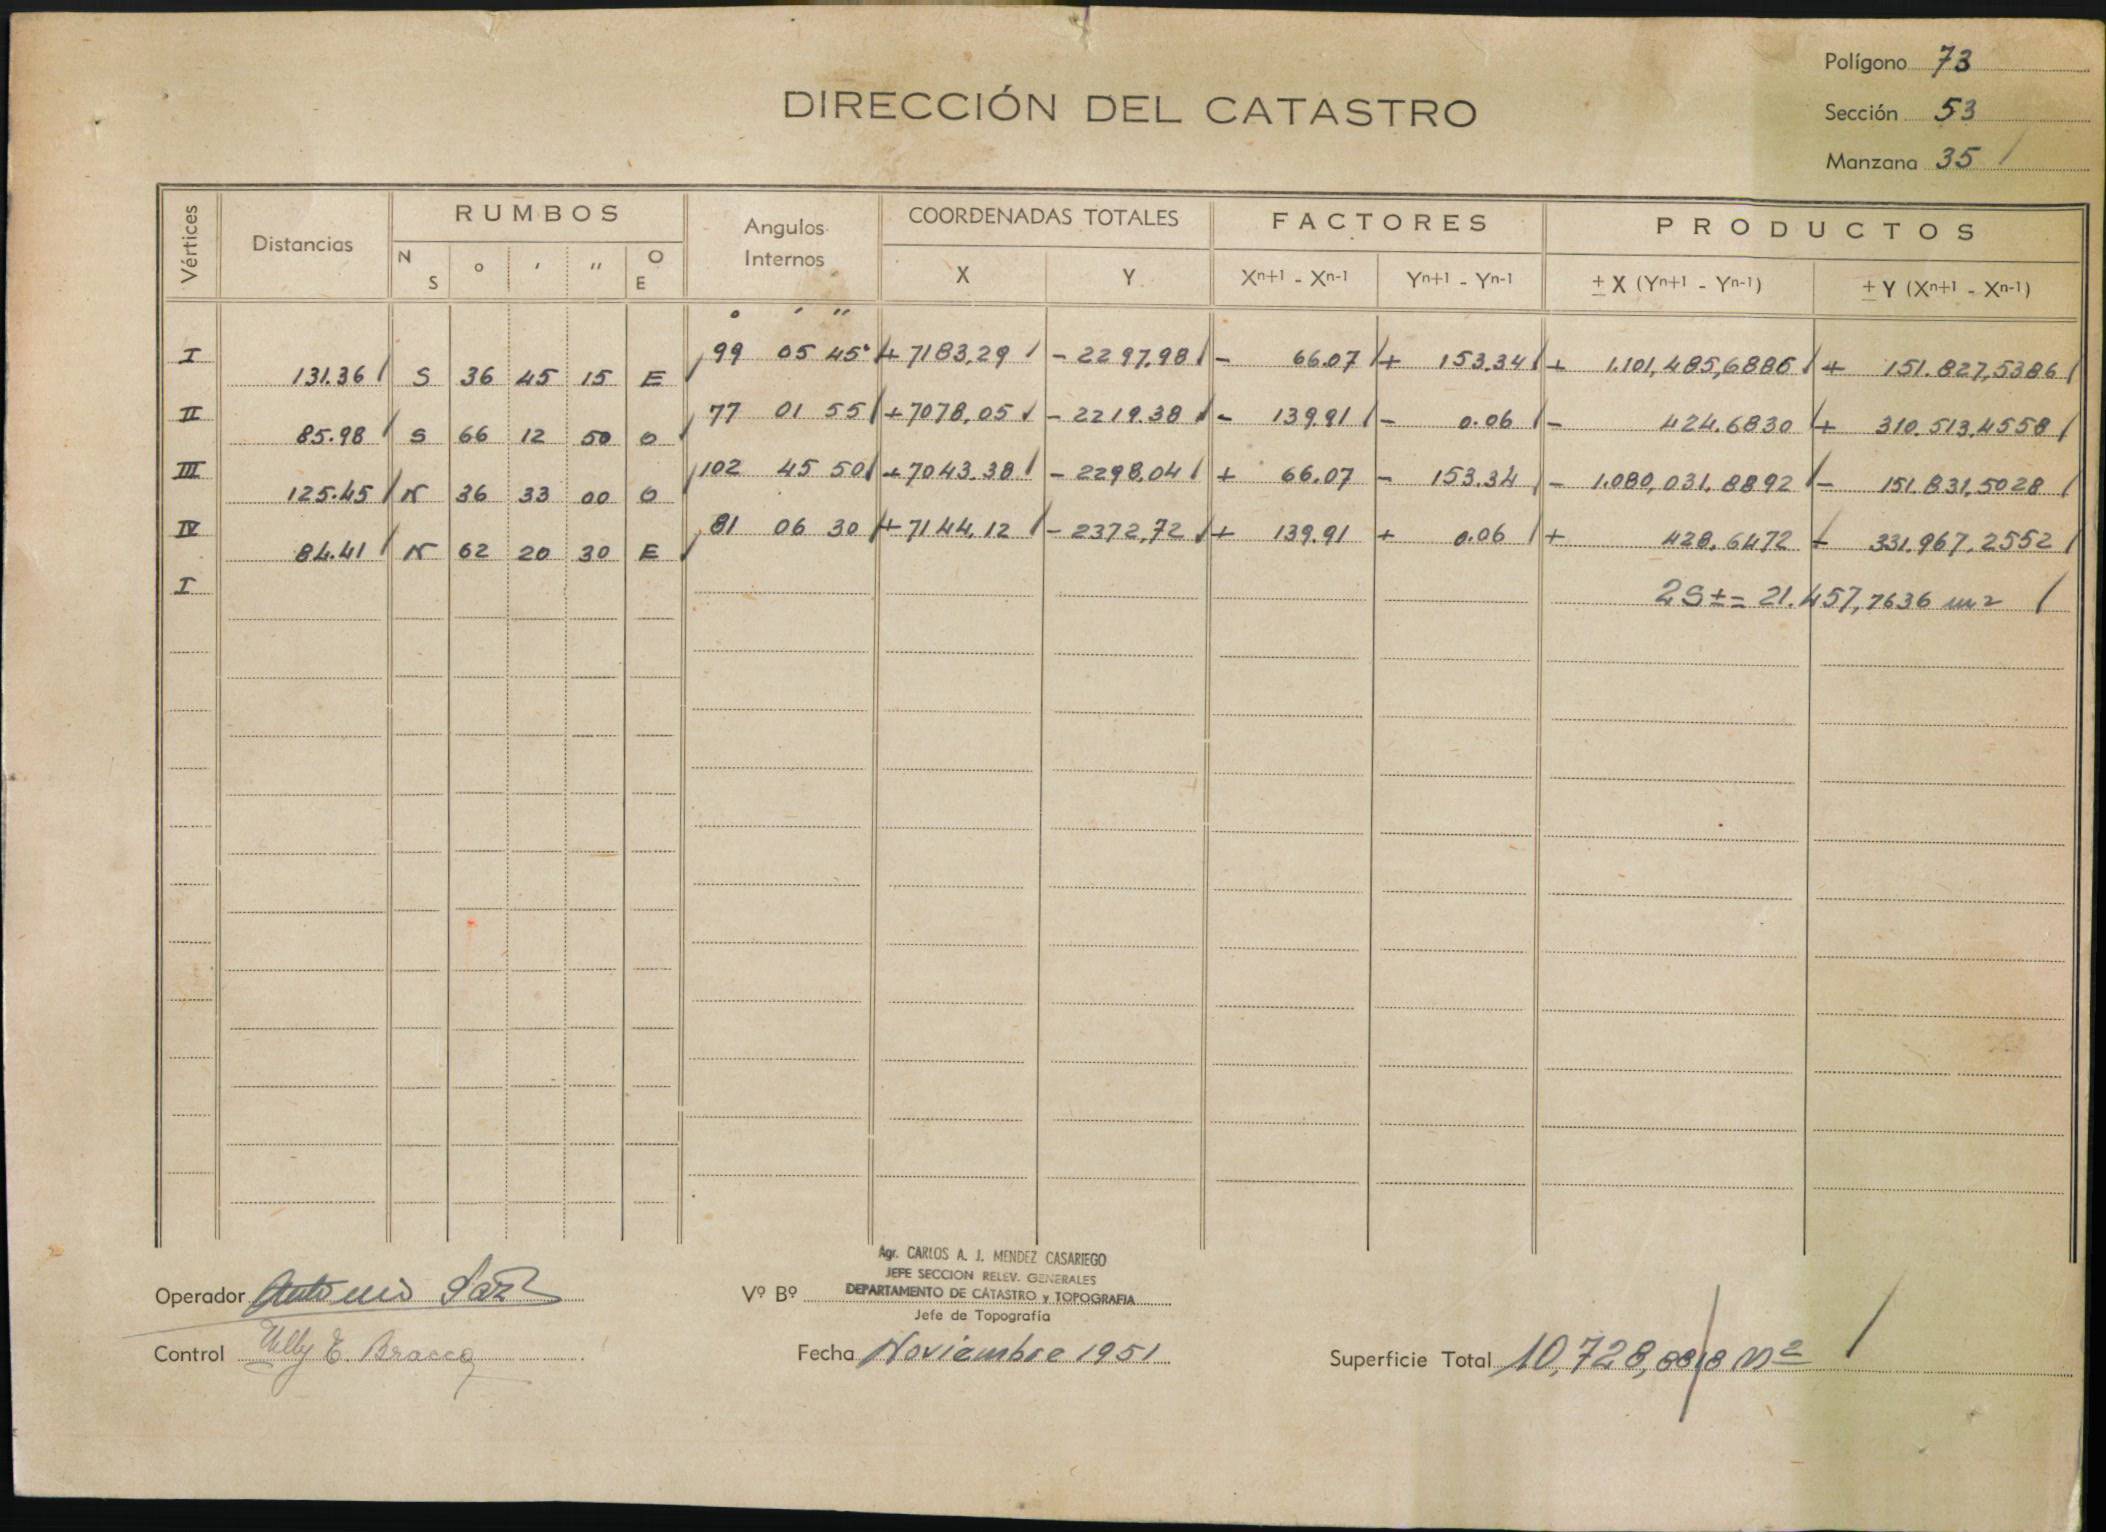 Polígono 73
DIRECCIÓN DEL CATASTRO
Sección 53
Manzana 35 /
Vértices
Distancias
RUMBOS
N S ° ' '' O E
Angulos Internos
COORDENADAS TOTALES
X Y
FACTORES
Xn+1 - Xn-1 Yn+1 - Yn-1
PRODUCTOS
± X (Yn+1 - Yn-1) ± Y (Xn+1 - Xn-1)
° ' ''
I 99 05 45" + 7183,29 - 2297,98 - 66.07 + 153.34 + 1.101,485,6886 + 151.827,5386
131.36 S 36 45 15 E
II 77 01 55 + 7078,05 - 2219.38 - 139.91 - 0.06 - 424.6830 + 310.513,4558
85.98 S 66 12 50 O
III 102 45 50 + 7043.38 - 2298,04 + 66.07 - 153.34 - 1.080,031.8892 - 151.831,5028
125.45 N 36 33 00 O
IV 81 06 30 + 7144,12 - 2372,72 + 139.91 + 0.06 + 428.6472 - 331.967,2552
84.41 N 62 20 30 E
I 2S±= 21.457,7636 m2
Operador Antonio
Control E. Bracco
Vº Bº
Agr. CARLOS A. J. MENDEZ CASARIEGO
JEFE SECCION RELEV. GENERALES
DEPARTAMENTO DE CATASTRO y TOPOGRAFIA
Jefe de Topografía
Fecha Noviembre 1951
Superficie Total 10,728,8818 m2